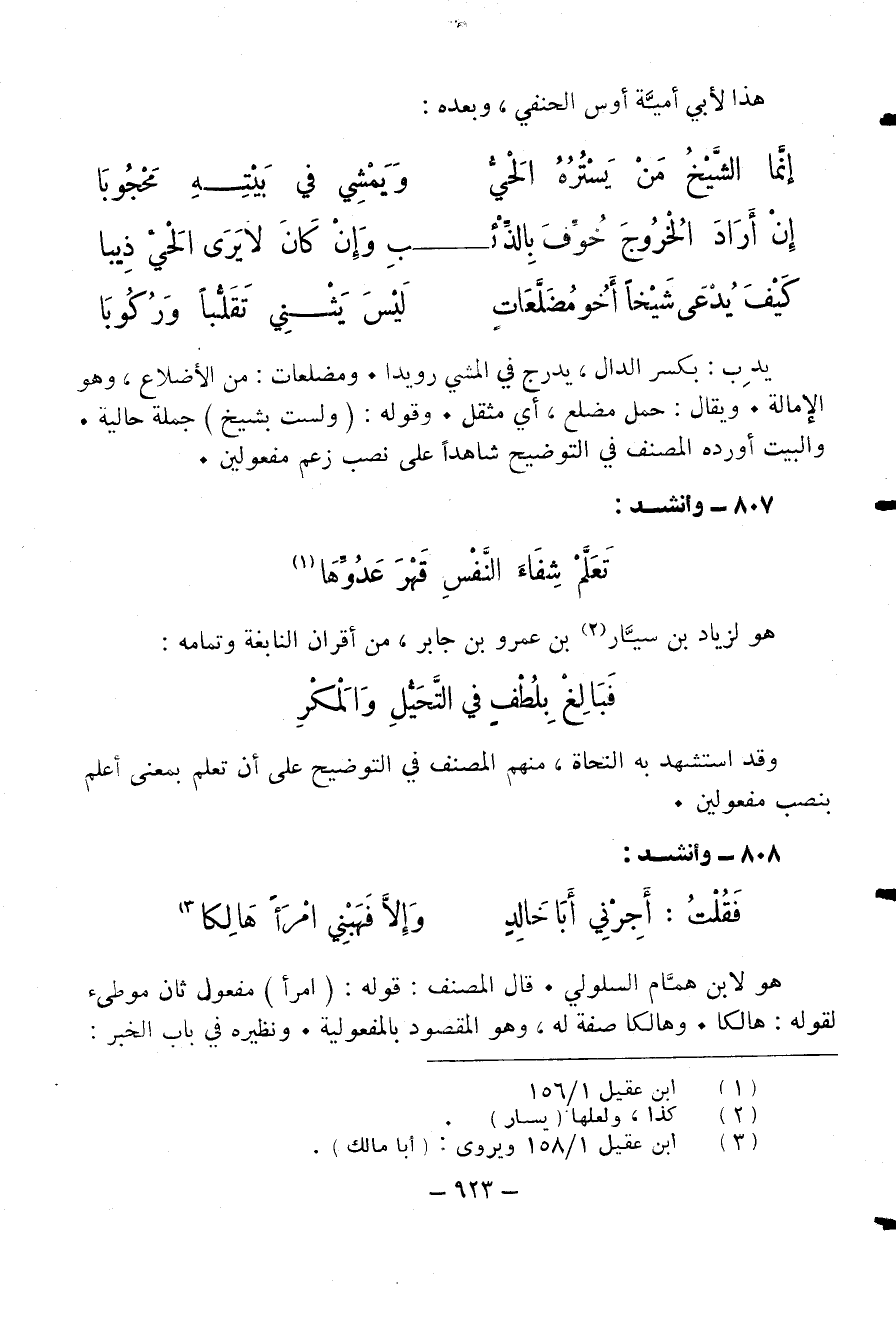 هذا لأبي أميَّة أوس الحنفي ، وبعده :
إِنَّمَا الشَّيْخُ مَنْ يَسْتُرُهُ الْحَيُّ وَيَمْشِي فِي بَيْتِهِ مَحْجُوبَا
إِنْ أَرَادَ الْخُرُوجَ خُوِّفَ بِالذِّئْبِ وَإِنْ كَانَ لَا يَرَى الْحَيُّ ذِيبا
كَيْفَ يُدْعَى شَيْخاً أَخُو مُضَلَّعَاتٍ لَيْسَ يَثْنِي تَقَلُّباً وَرُكُوبَا
يدِب : بكسر الدال ، يدرج في المشي رويدا • ومضلعات : من الأضلاع ، وهو
الإمالة • ويقال : حمل مضلع ، أي مثقل • وقوله : ( ولست بشيخ ) جملة حالية •
والبيت أورده المصنف في التوضيح شاهداً على نصب زعم مفعولين •
٨٠٧ ــ وأنشد :
تَعَلَّمْ شِفَاءَ النَّفْسِ قَهْرَ عَدُوِّهَا (١)
هو لزياد بن سيَّار(٢) بن عمرو بن جابر ، من أقران النابغة وتمامه :
فَبَالِغْ بِلُطْفٍ فِي التَّحَيُّلِ وَالْمَكْرِ
وقد استشهد به النحاة ، منهم المصنف في التوضيح على أن تعلم بمعنى أعلم
بنصب مفعولين •
٨٠٨ ــ وأنشد :
فَقُلْتُ : أَجِرْنِي أَبَا خَالِدٍ وَإِلاَّ فَهَبْنِي امْرَأً هَالِكا ٣)
هو لابن همَّام السلولي • قال المصنف : قوله : ( امرأ ) مفعول ثان موطىء
لقوله : هالكا • وهالكا صفة له ، وهو المقصود بالمفعولية • ونظيره في باب الخبر :
( ١ ) ابن عقيل ١٥٦/١
( ٢ ) كذا ، ولعلها ( يسار ) .
( ٣ ) ابن عقيل ١٥٨/١ ويروى : ( أبا مالك ) .
ــ ٩٢٣ ــ